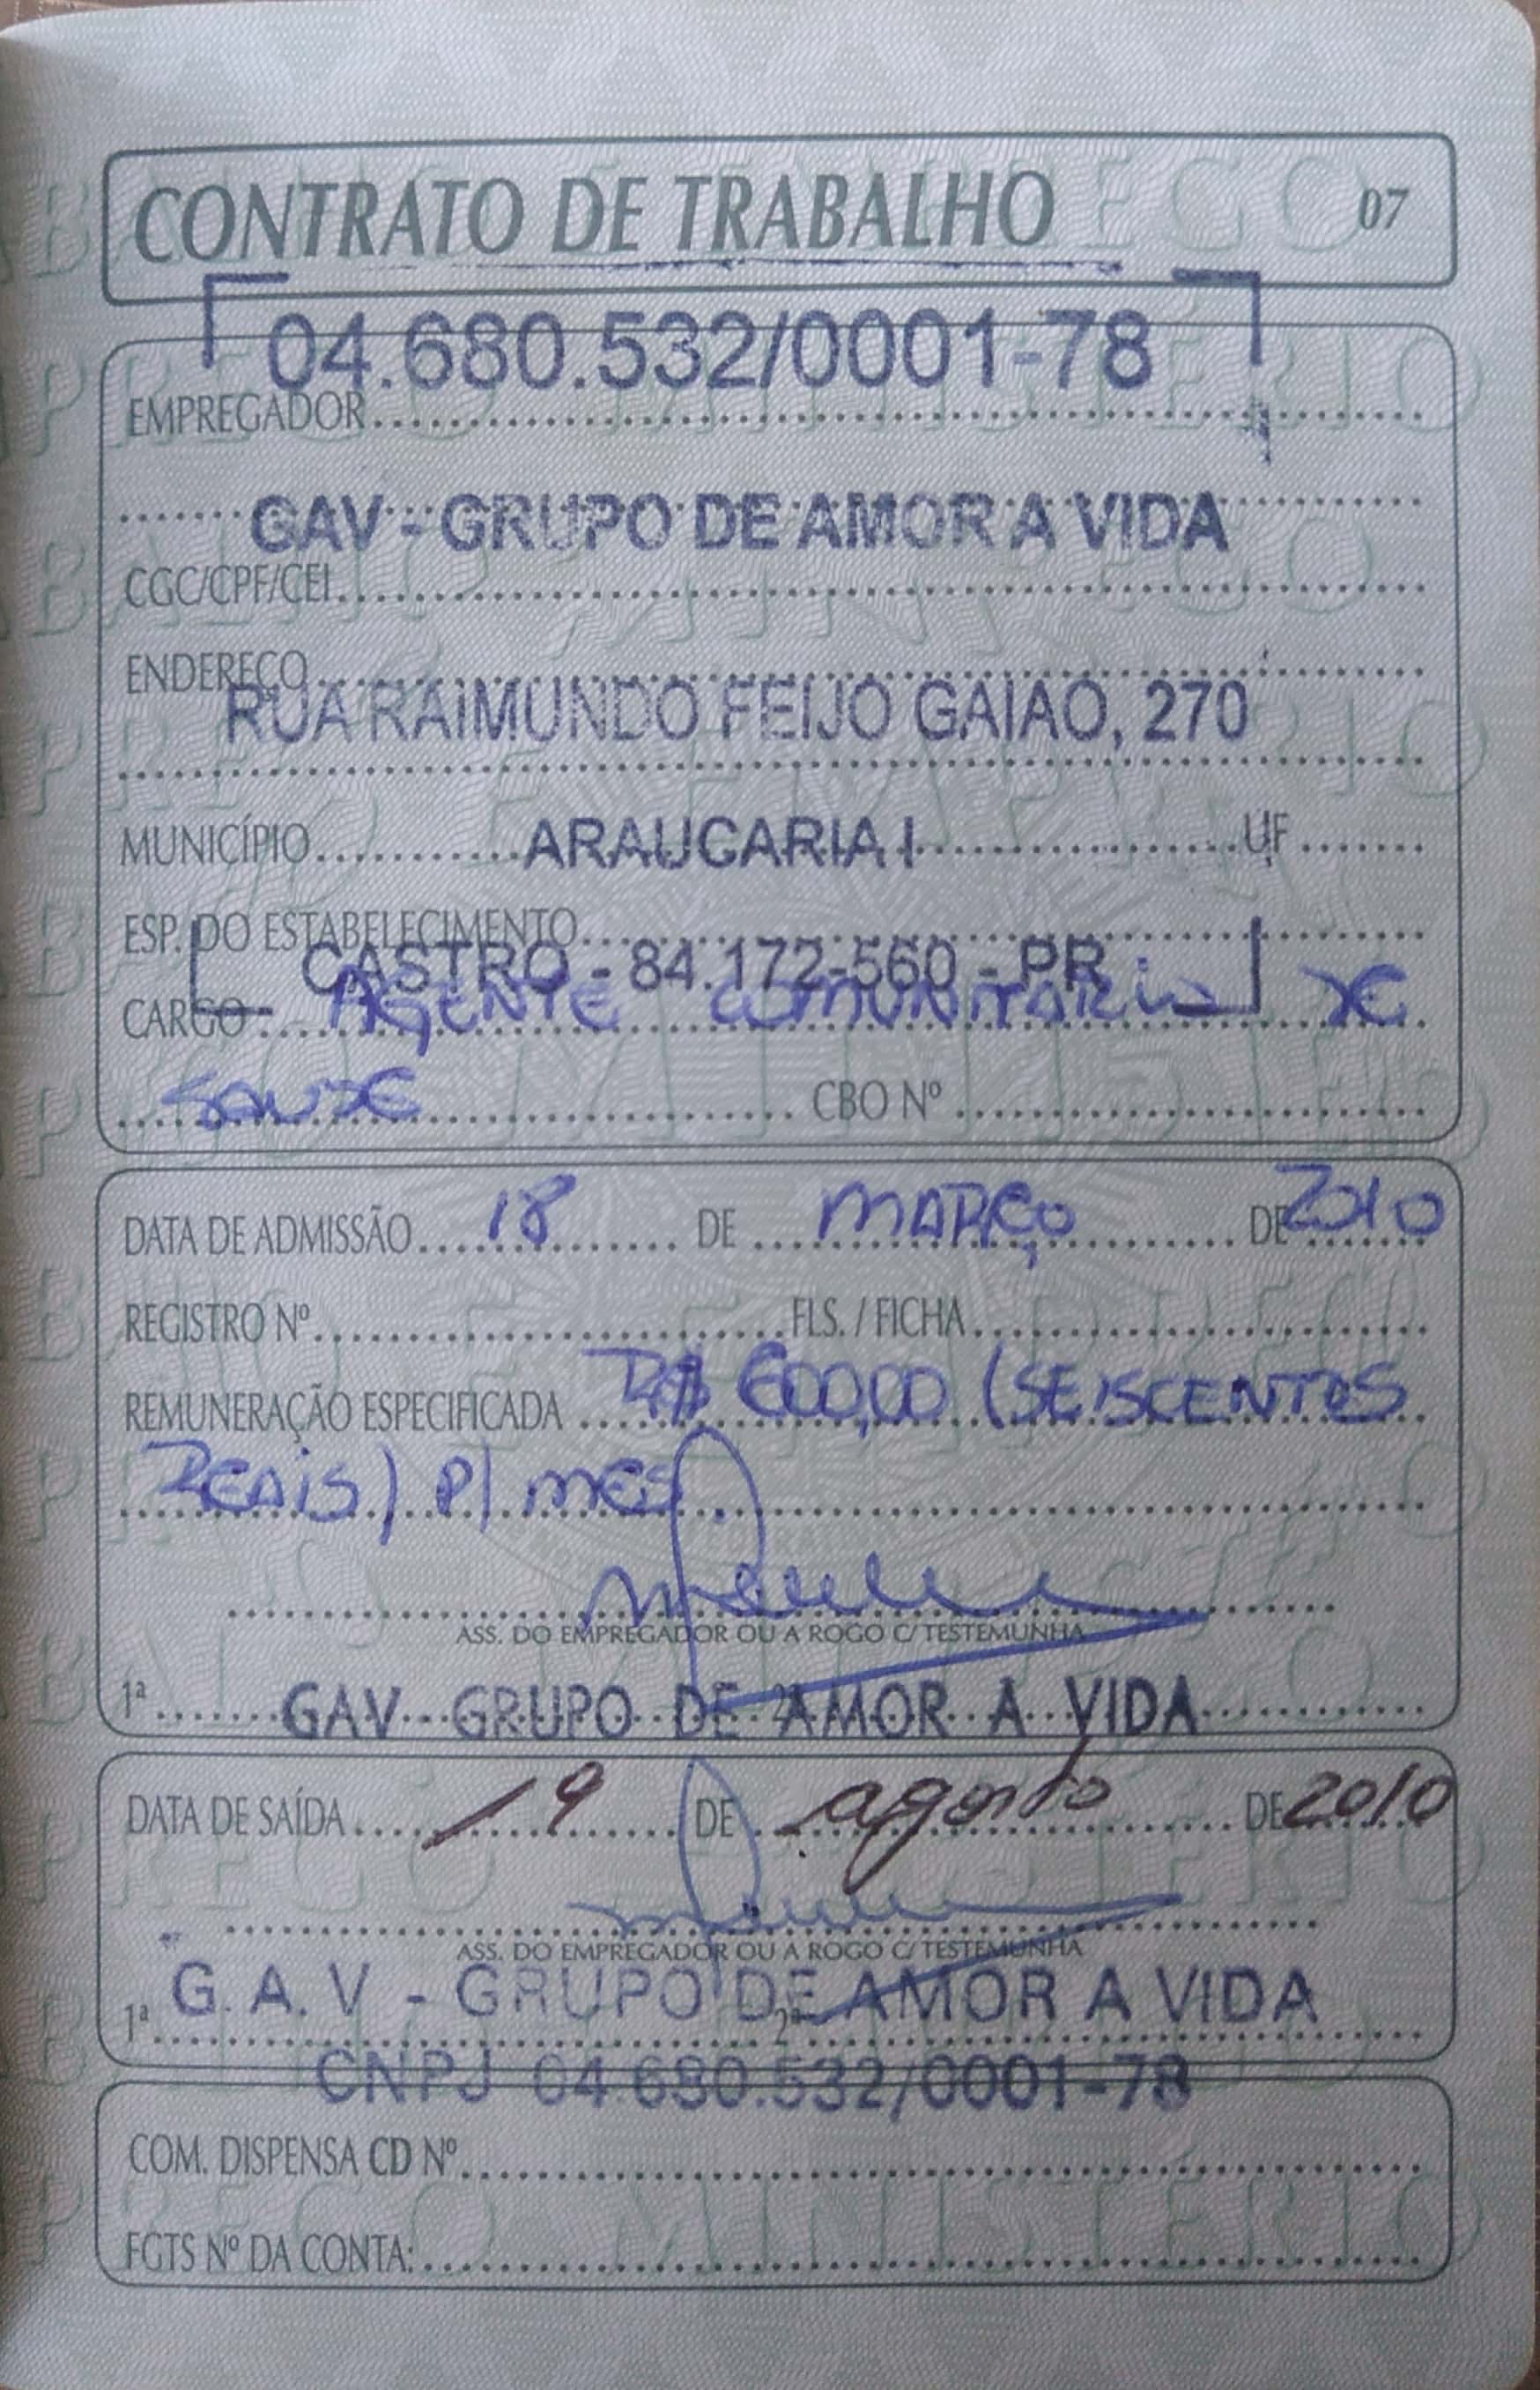 CONTRATO DE TRABALHO 07
04.680.532/0001-78
EMPREGADOR
GAV - GRUPO DE AMOR A VIDA
CGC/CPF/CEI
ENDEREÇO
RUA RAIMUNDO FEIJO GAIAO, 270
MUNICÍPIO ARAUCARIA I UF
ESP. DO ESTABELECIMENTO
CASTRO - 84.172-560 - PR
CARGO AGENTE COMUNITARIO DE
SAUDE CBO Nº
DATA DE ADMISSÃO 18 DE MARÇO DE 2010
REGISTRO Nº FLS. / FICHA
REMUNERAÇÃO ESPECIFICADA R$ 600,00 (SEISCENTOS
REAIS) P/ MES
ASS. DO EMPREGADOR OU A ROGO C/ TESTEMUNHA
1ª GAV - GRUPO DE AMOR A VIDA 2ª
DATA DE SAÍDA 19 DE agosto DE 2010
ASS. DO EMPREGADOR OU A ROGO C/ TESTEMUNHA
G. A. V - GRUPO DE AMOR A VIDA
1ª 2ª
CNPJ 04.680.532/0001-78
COM. DISPENSA CD Nº
FGTS Nº DA CONTA: